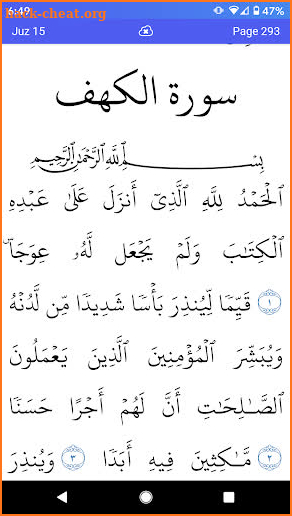 hack-cheat.org
6:49 47%
Juz 15 Page 293
سورة الكهف
بِسْمِ اللَّهِ الرَّحْمَٰنِ الرَّحِيمِ
الْحَمْدُ لِلَّهِ الَّذِيٓ أَنزَلَ عَلَىٰ عَبْدِهِ
الْكِتَٰبَ وَلَمْ يَجْعَل لَّهُۥ عِوَجَاۜ
١ قَيِّمًا لِّيُنذِرَ بَأْسًا شَدِيدًا مِّن لَّدُنْهُ
وَيُبَشِّرَ الْمُؤْمِنِينَ الَّذِينَ يَعْمَلُونَ
الصَّٰلِحَٰتِ أَنَّ لَهُمْ أَجْرًا حَسَنًا
٢ مَّٰكِثِينَ فِيهِ أَبَدًا ٣ وَيُنذِرَ